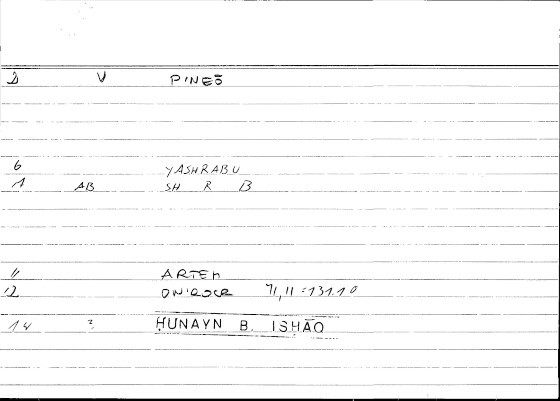 D V PINES
6 YASHRABU
1 AB SH R B
11 ARTEM
12 ONIROCR 71,11 : 131.10
14 ? ḤUNAYN B. ISḤĀQ